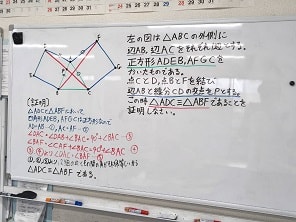 左の図は△ABCの外側に
辺AB, 辺ACをそれぞれ1辺とする
正方形ADEB, AFGCを
かいたものである。
点CとD, 点BとFを結び
辺ABと線分CDの交点をPとする。
この時△ADC≡△ABFであることを
証明しなさい。
(証明)
△ADCと△ABFにおいて
四角形ADEB, AFGCは正方形なので
AD=AB-①, AC=AF-②
∠DAC=∠DAB+∠BAC=90°+∠BAC-③
∠BAF=∠CAF+∠BAC=90°+∠BAC ④
③, ④より∠DAC=∠BAF-⑤
①, ②, ⑤より, 2組の辺とその間の角がそれぞれ等しい
△ADC≡△ABFである。